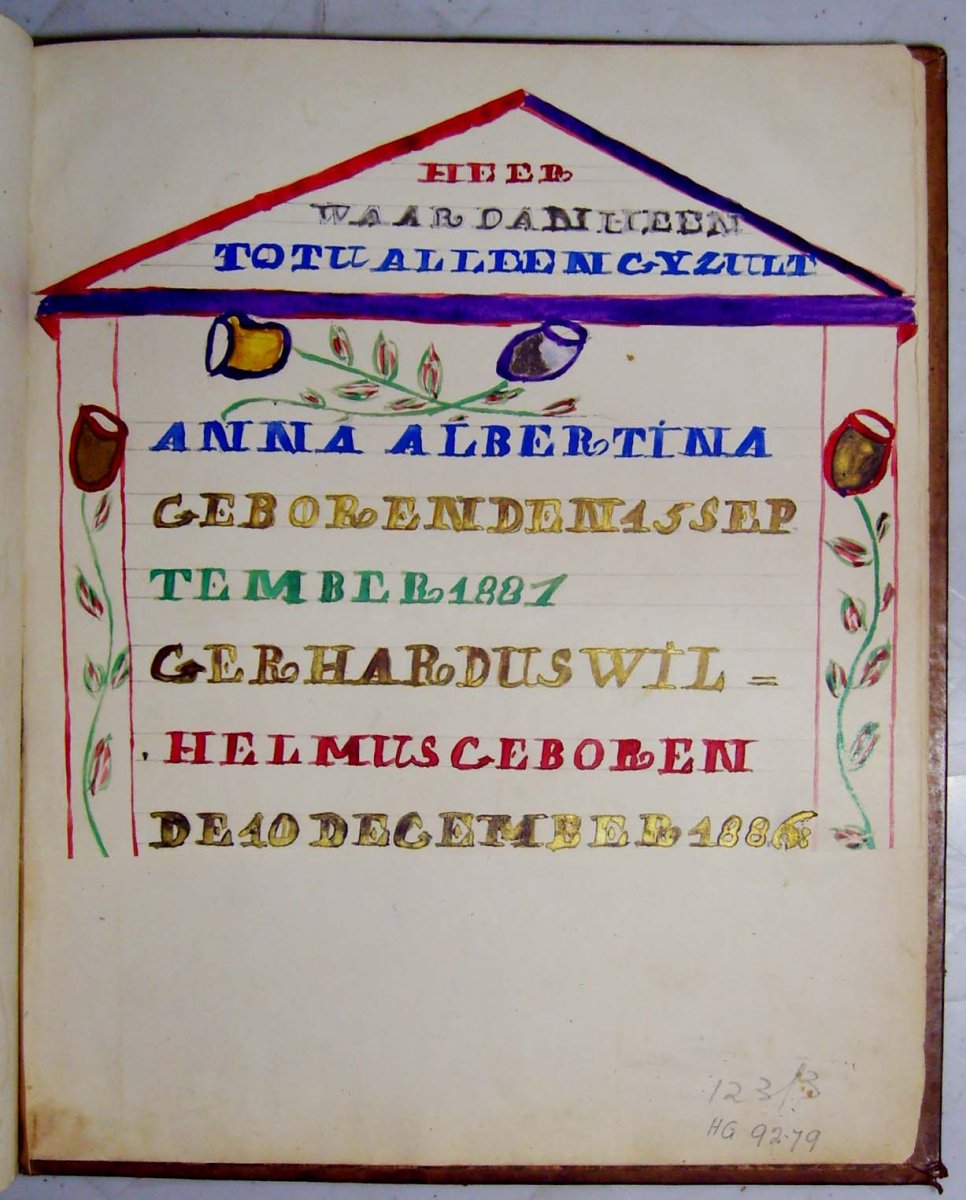 HEER
WAAR DAN HEEN
TOT U ALLEEN GY ZULT
ANNA ALBERTINA
GEBOREN DEN 15 SEP
TEMBER 1881
GERHARDUS WIL =
HELMUS GEBOREN
DE 10 DECEMBER 1886:
123/3
HG 92-79